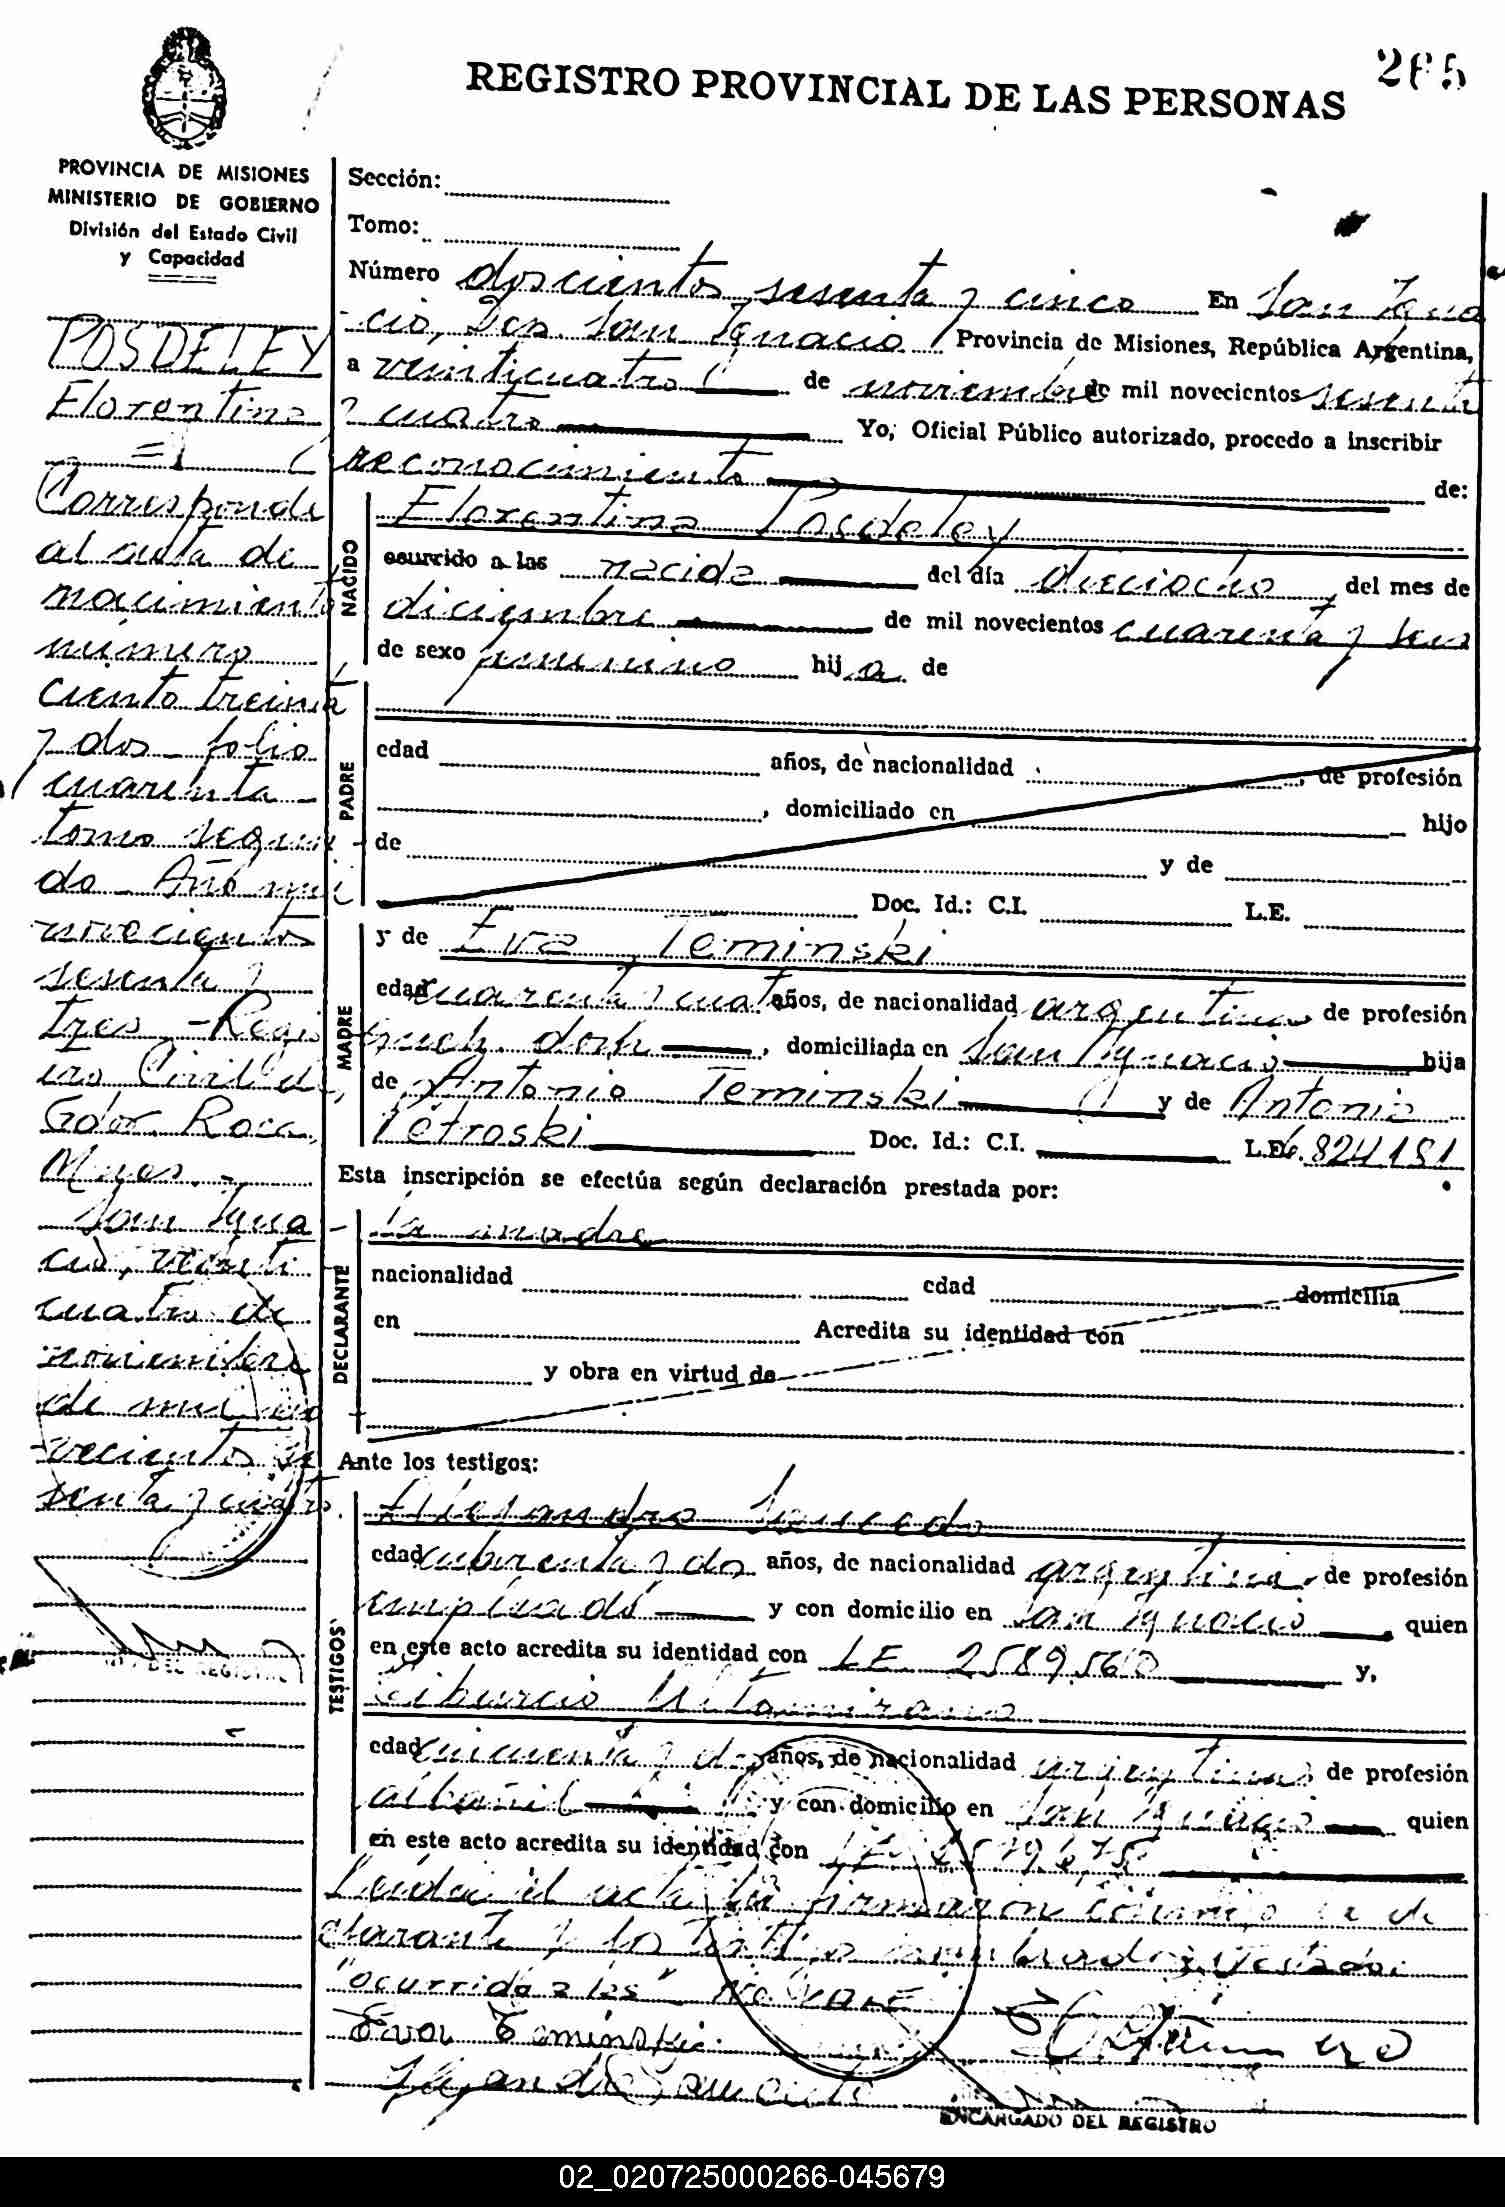 265
REGISTRO PROVINCIAL DE LAS PERSONAS
PROVINCIA DE MISIONES
MINISTERIO DE GOBIERNO
División del Estado Civil
y Capacidad
POSDELEY
Florentina
Corresponde
al acta de
nacimiento
número
ciento treinta
y dos - folio
cuarenta
tomo segun
do - Año mil
novecientos
sesenta y
tres - Regis
tro Civil de
Gdor. Roca,
Mnes. -
San Igna
cio, veinti
cuatro de
noviembre
de mil no
vecientos se
senta y cuatro.
Sección:
Tomo:
Número doscientos sesenta y cinco En San Igna
cio, Dep. San Ignacio Provincia de Misiones, República Argentina,
a veinticuatro de noviembre de mil novecientos sesenta
y cuatro Yo, Oficial Público autorizado, procedo a inscribir
reconocimiento de:
NACIDO
Florentina Posdeley
ocurrido a las nacida del día dieciocho del mes de
diciembre de mil novecientos cuarenta y seis
de sexo femenino hija de
PADRE
edad años, de nacionalidad , de profesión
, domiciliado en hijo
de y de
Doc. Id.: C.I. L.E.
MADRE
y de Eva Teminski
edad cuarenta y cuatro años, de nacionalidad argentina de profesión
domiciliada en San Ignacio hija
de Antonio Teminski y de Antonia
Petroski Doc. Id.: C.I. L.E. 6.824.181
Esta inscripción se efectúa según declaración prestada por:
DECLARANTE
la madre
nacionalidad edad domicilia
en Acredita su identidad con
y obra en virtud de
Ante los testigos:
TESTIGOS
Alejandro Saucedo
edad cuarenta y dos años, de nacionalidad argentina, de profesión
empleado y con domicilio en San Ignacio quien
en este acto acredita su identidad con LE 2589560 y,
Tiburcio Altamirano
edad cincuenta y dos años, de nacionalidad argentina de profesión
albañil y con domicilio en San Ignacio quien
en este acto acredita su identidad con LE
Leída el acta la firmaron conmigo la de
clarante y los testigos nombrados. Testado:
"ocurrido a las" NO VALE
Eva Teminski
Alejandro Saucedo
ENCARGADO DEL REGISTRO
02_020725000266-045679